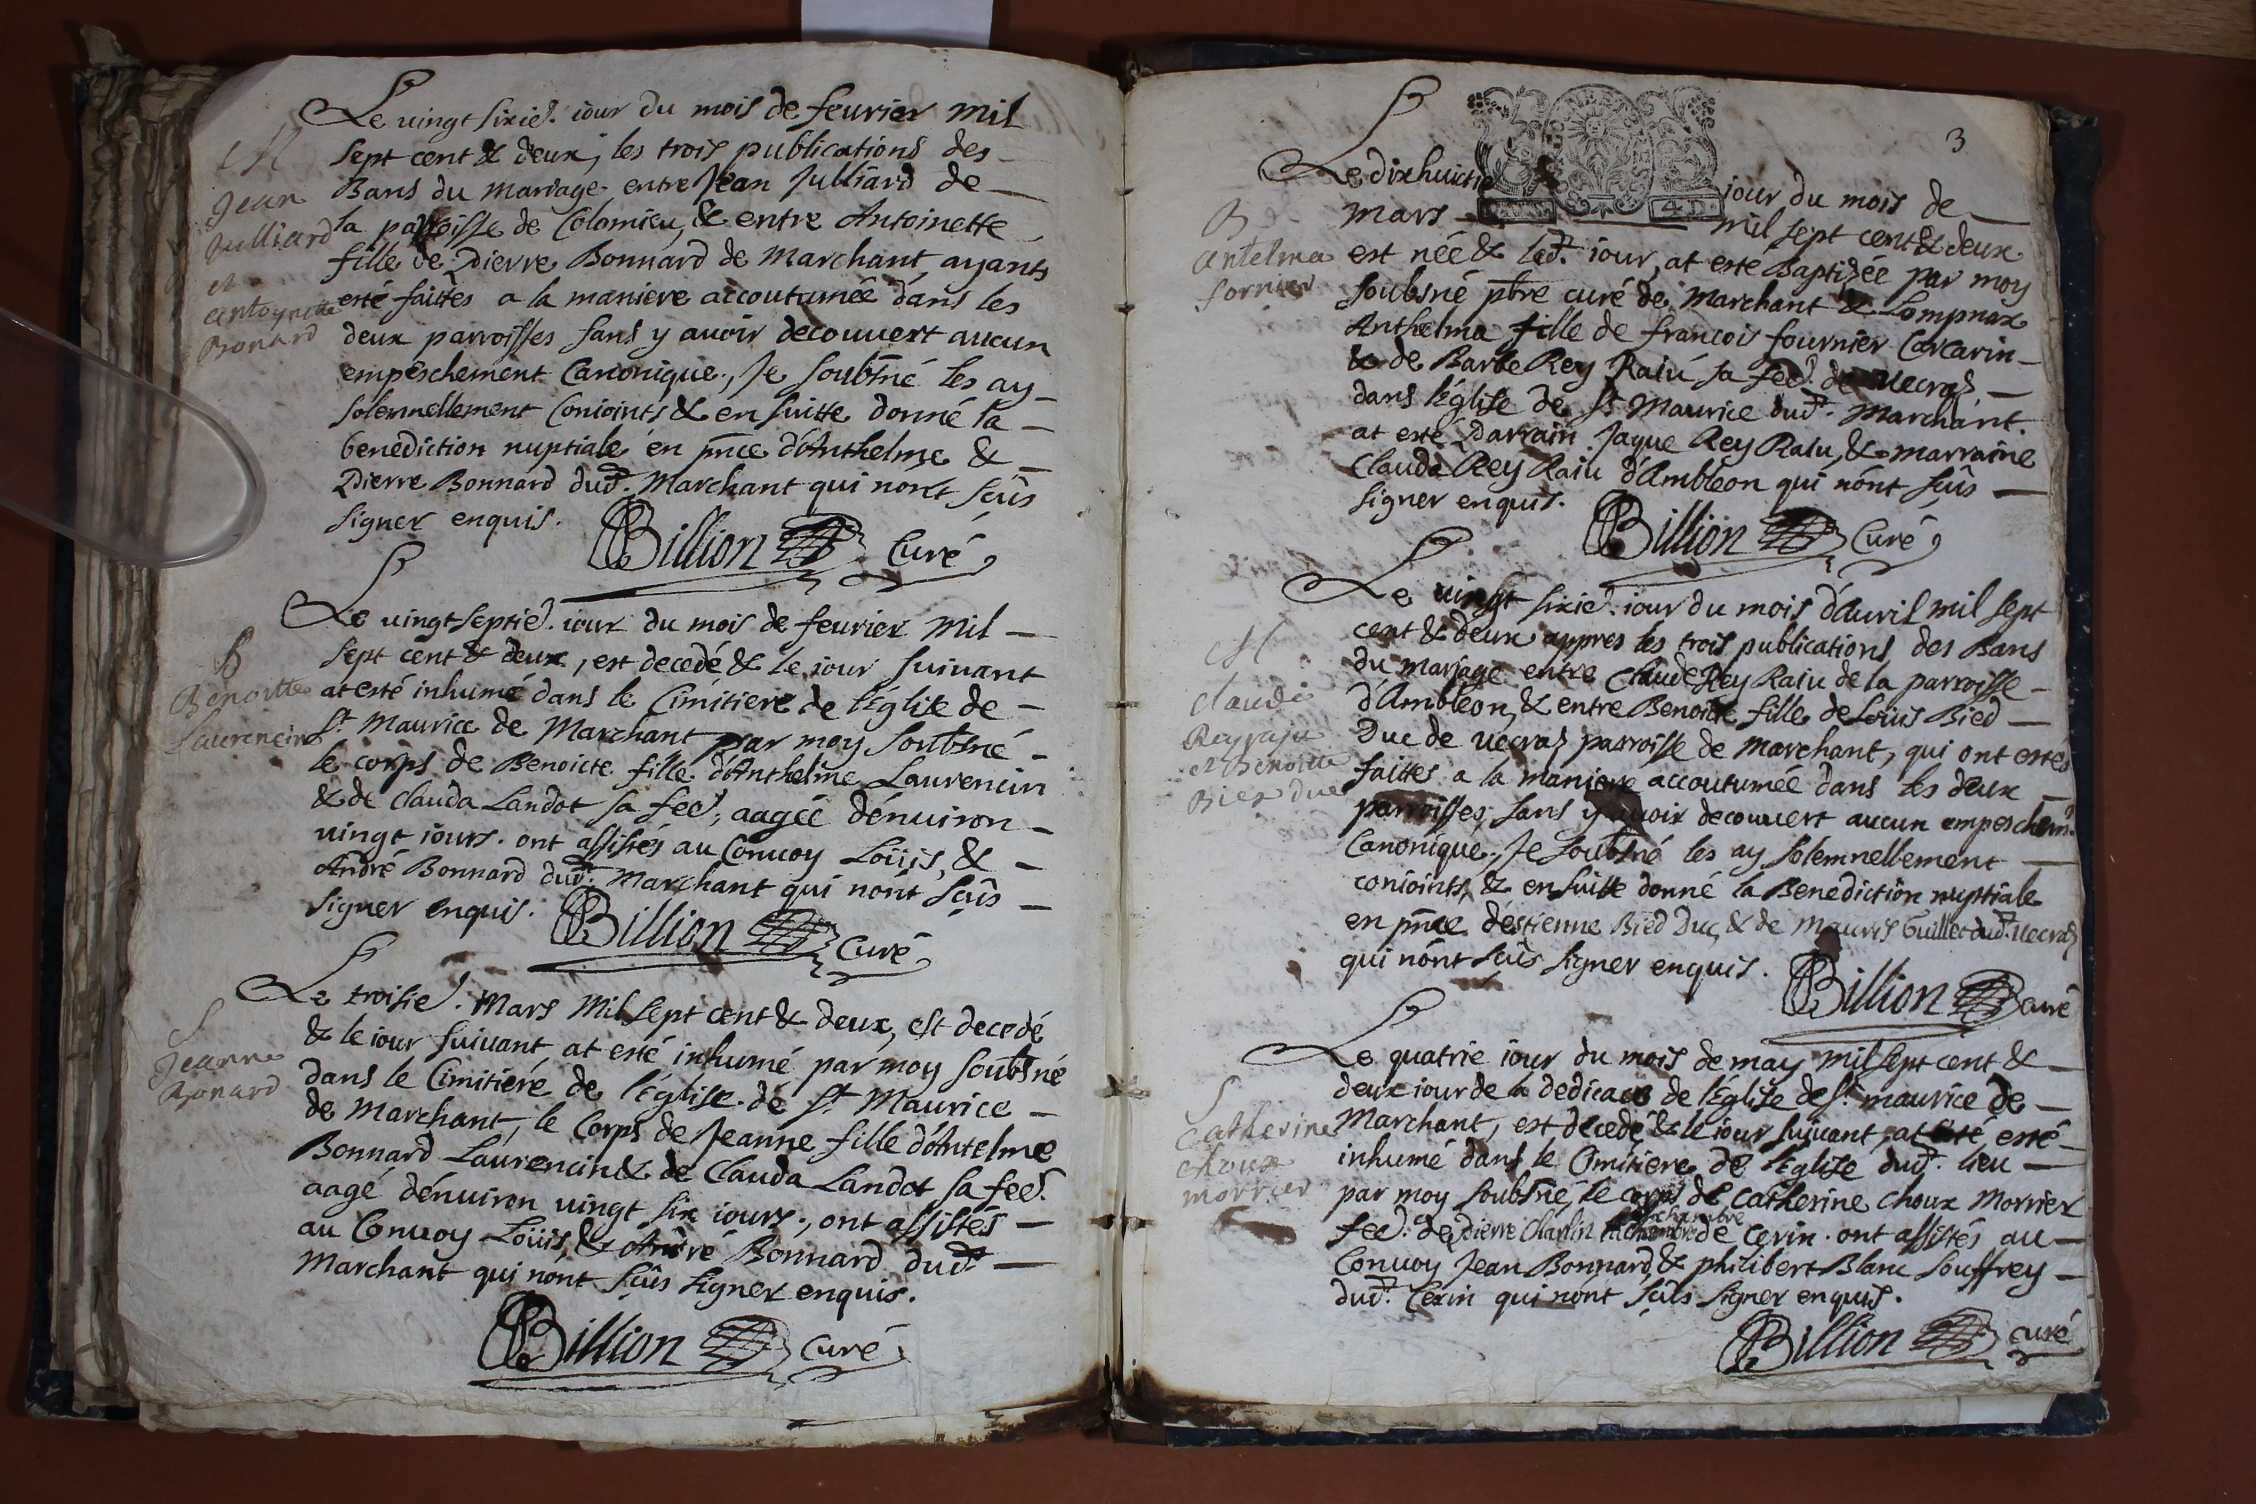 Le vingt sixie. iour du mois de feurier mil
M
sept cent & deux, les trois publications des
Jean
Bans du Mariage entre Jean Julliard de
Julliard
la paroisse de Colomieu, & entre Antoinette
et
fille de Pierre Bonnard de Marchant, ayants
antoynette
esté faittes a la maniere accoutumée dans les
Bonard
deux parroisses sans y auoir decouuert aucun
empeschement Canonique, Je soubsné les ay
solemnellement Conioints & en suitte donné la
benediction nuptiale en pnce d'Anthelme &
Pierre Bonnard dud. Marchant qui n'ont sçûs
signer enquis.
Billion Curé
Le uingt septie. iour du mois de feurier mil
sept cent & deux, est decedé & le iour suiuant
Benoitte
at esté inhumé dans le Cimitiere de l'Église de
Laurencin
St. Maurice de Marchant par moy soubsné
le corps de Benoicte fille d'Anthelme Laurencin
& de Clauda Landot sa fee, aagée d'enuiron
uingt iours. ont assistés au Conuoy Loüis, &
André Bonnard dud. Marchant qui n'ont sçûs
signer enquis.
Billion Curé
Le troisie. Mars Mil sept cent & deux, est decedé
S
& le iour suiuant at esté inhumé par moy soubsné
Jeanne
dans le Cimitiere de l'Église de St. Maurice
Bonard
de Marchant, le Corps de Jeanne fille d'Antelme
Bonnard Laurencin & de Clauda Landot sa fee.
aagé d'enuiron uingt six iours, ont assistés
au Conuoy Loüis, & André Bonnard dud.
Marchant qui n'ont sçûs signer enquis.
Billion Curé
3
Le dixhuictie iour du mois de
Mars mil sept cent & deux
B
antelma
est née & led. iour, at esté Baptizée par moy
fornier
soubsné pbre curé de Marchant & Lompnax
Anthelma fille de francois fournier Carcarin
& de Barbe Rey Raiu sa fee. de uecraz
dans l'Église de St Maurice dud. Marchant.
at esté Parrain Jaque Rey Raiu, & marraine
Clauda Rey Raiu d'Ambleon qui n'ont sçûs
signer enquis.
Billion Curé
Le uingt sixie. iour du mois d'Auril mil sept
cent & deux appres les trois publications des Bans
M
du mariage entre Claude Rey Raiu de la parroisse
Claude
d'Ambleon, & entre Benoicte fille de Loüis Bied
Rey raju
Duc de uecraz parroisse de Marchant, qui ont estés
et Benoitte
faittes a la maniere accoutumée dans les deux
Bied duc
parroisses, sans y auoir decouuert aucun empeschem.
Canonique, Je soubsné les ay solemnellement
conioints, & en suitte donné la Benediction nuptiale
en pnce d'Estienne Bied Duc, & de Mauris Guillet dud. uecraz
qui n'ont sçûs signer enquis.
Billion curé
Le quatrie iour du mois de may mil sept cent &
deux iour de la dedicace de l'Église de St. maurice de
S
Marchant, est decedé & le iour suiuant at esté
Catherine
inhumé dans le Cimitiere de l'Eglize dud. lieu
choux
par moy soubsné, le corps de Catherine Choux Morrier
morrier
fee. de Pierre Charlin de Cerin. ont assistés au
Conuoy Jean Bonnard, & philibert Blanc Souffrey
dud. Cerin qui n'ont sçûs signer enquis.
Billion curé